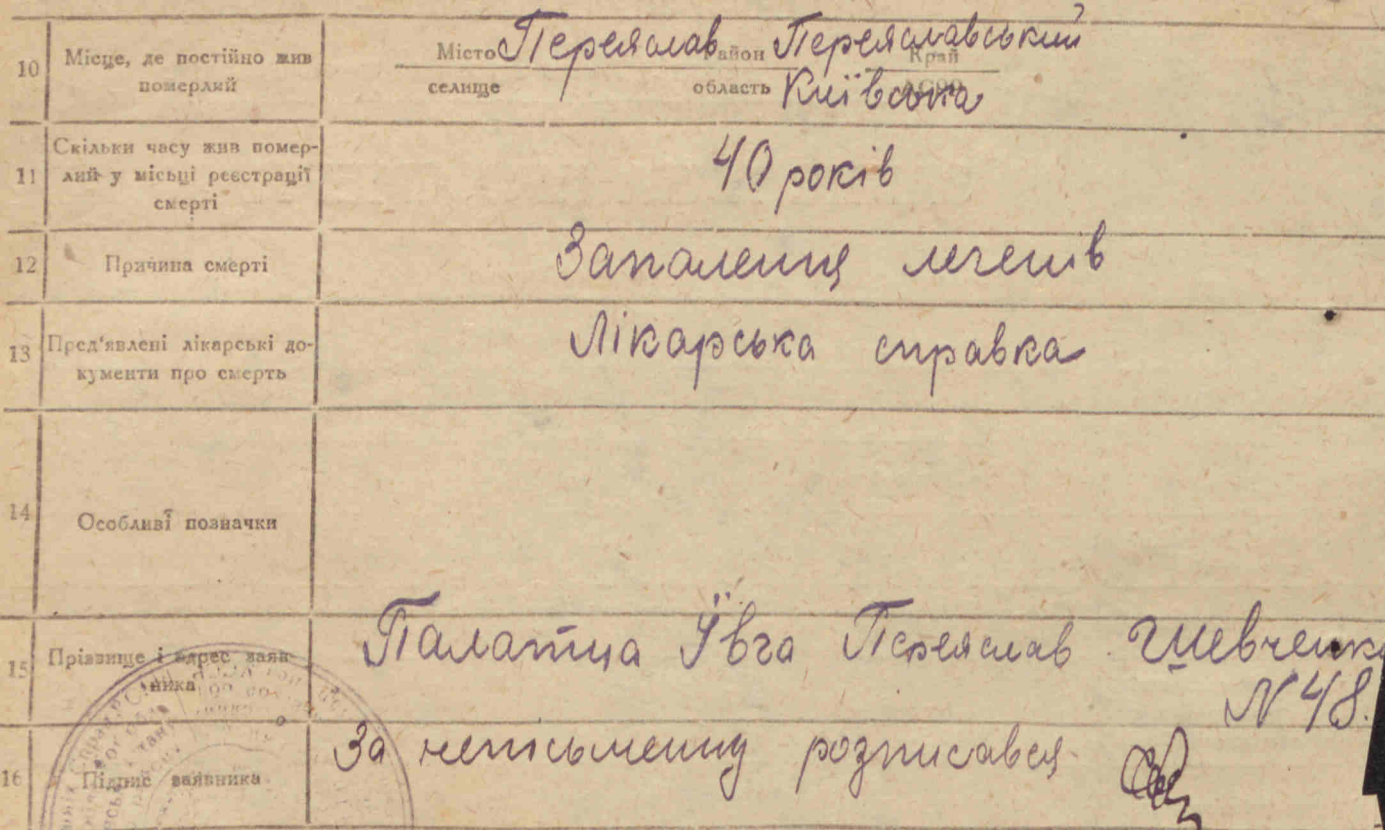 10 Місце, де постійно жив померлий
Місто Переяслав Район Переяславський Край
селище область Київська АСРР
11 Скільки часу жив помер-
лий у місьці реєстрації
смерті
40 років
12 Причина смерті Запалення легенів
13 Пред'явлені лікарські до-
кументи про смерть
Лікарська справка
14 Особливі позначки
15 Прізвище і адрес заяв-
ника
Палатца Ївга Переяслав Шевченка
N 48.
16 Підпис заявника За неписьменну розписався